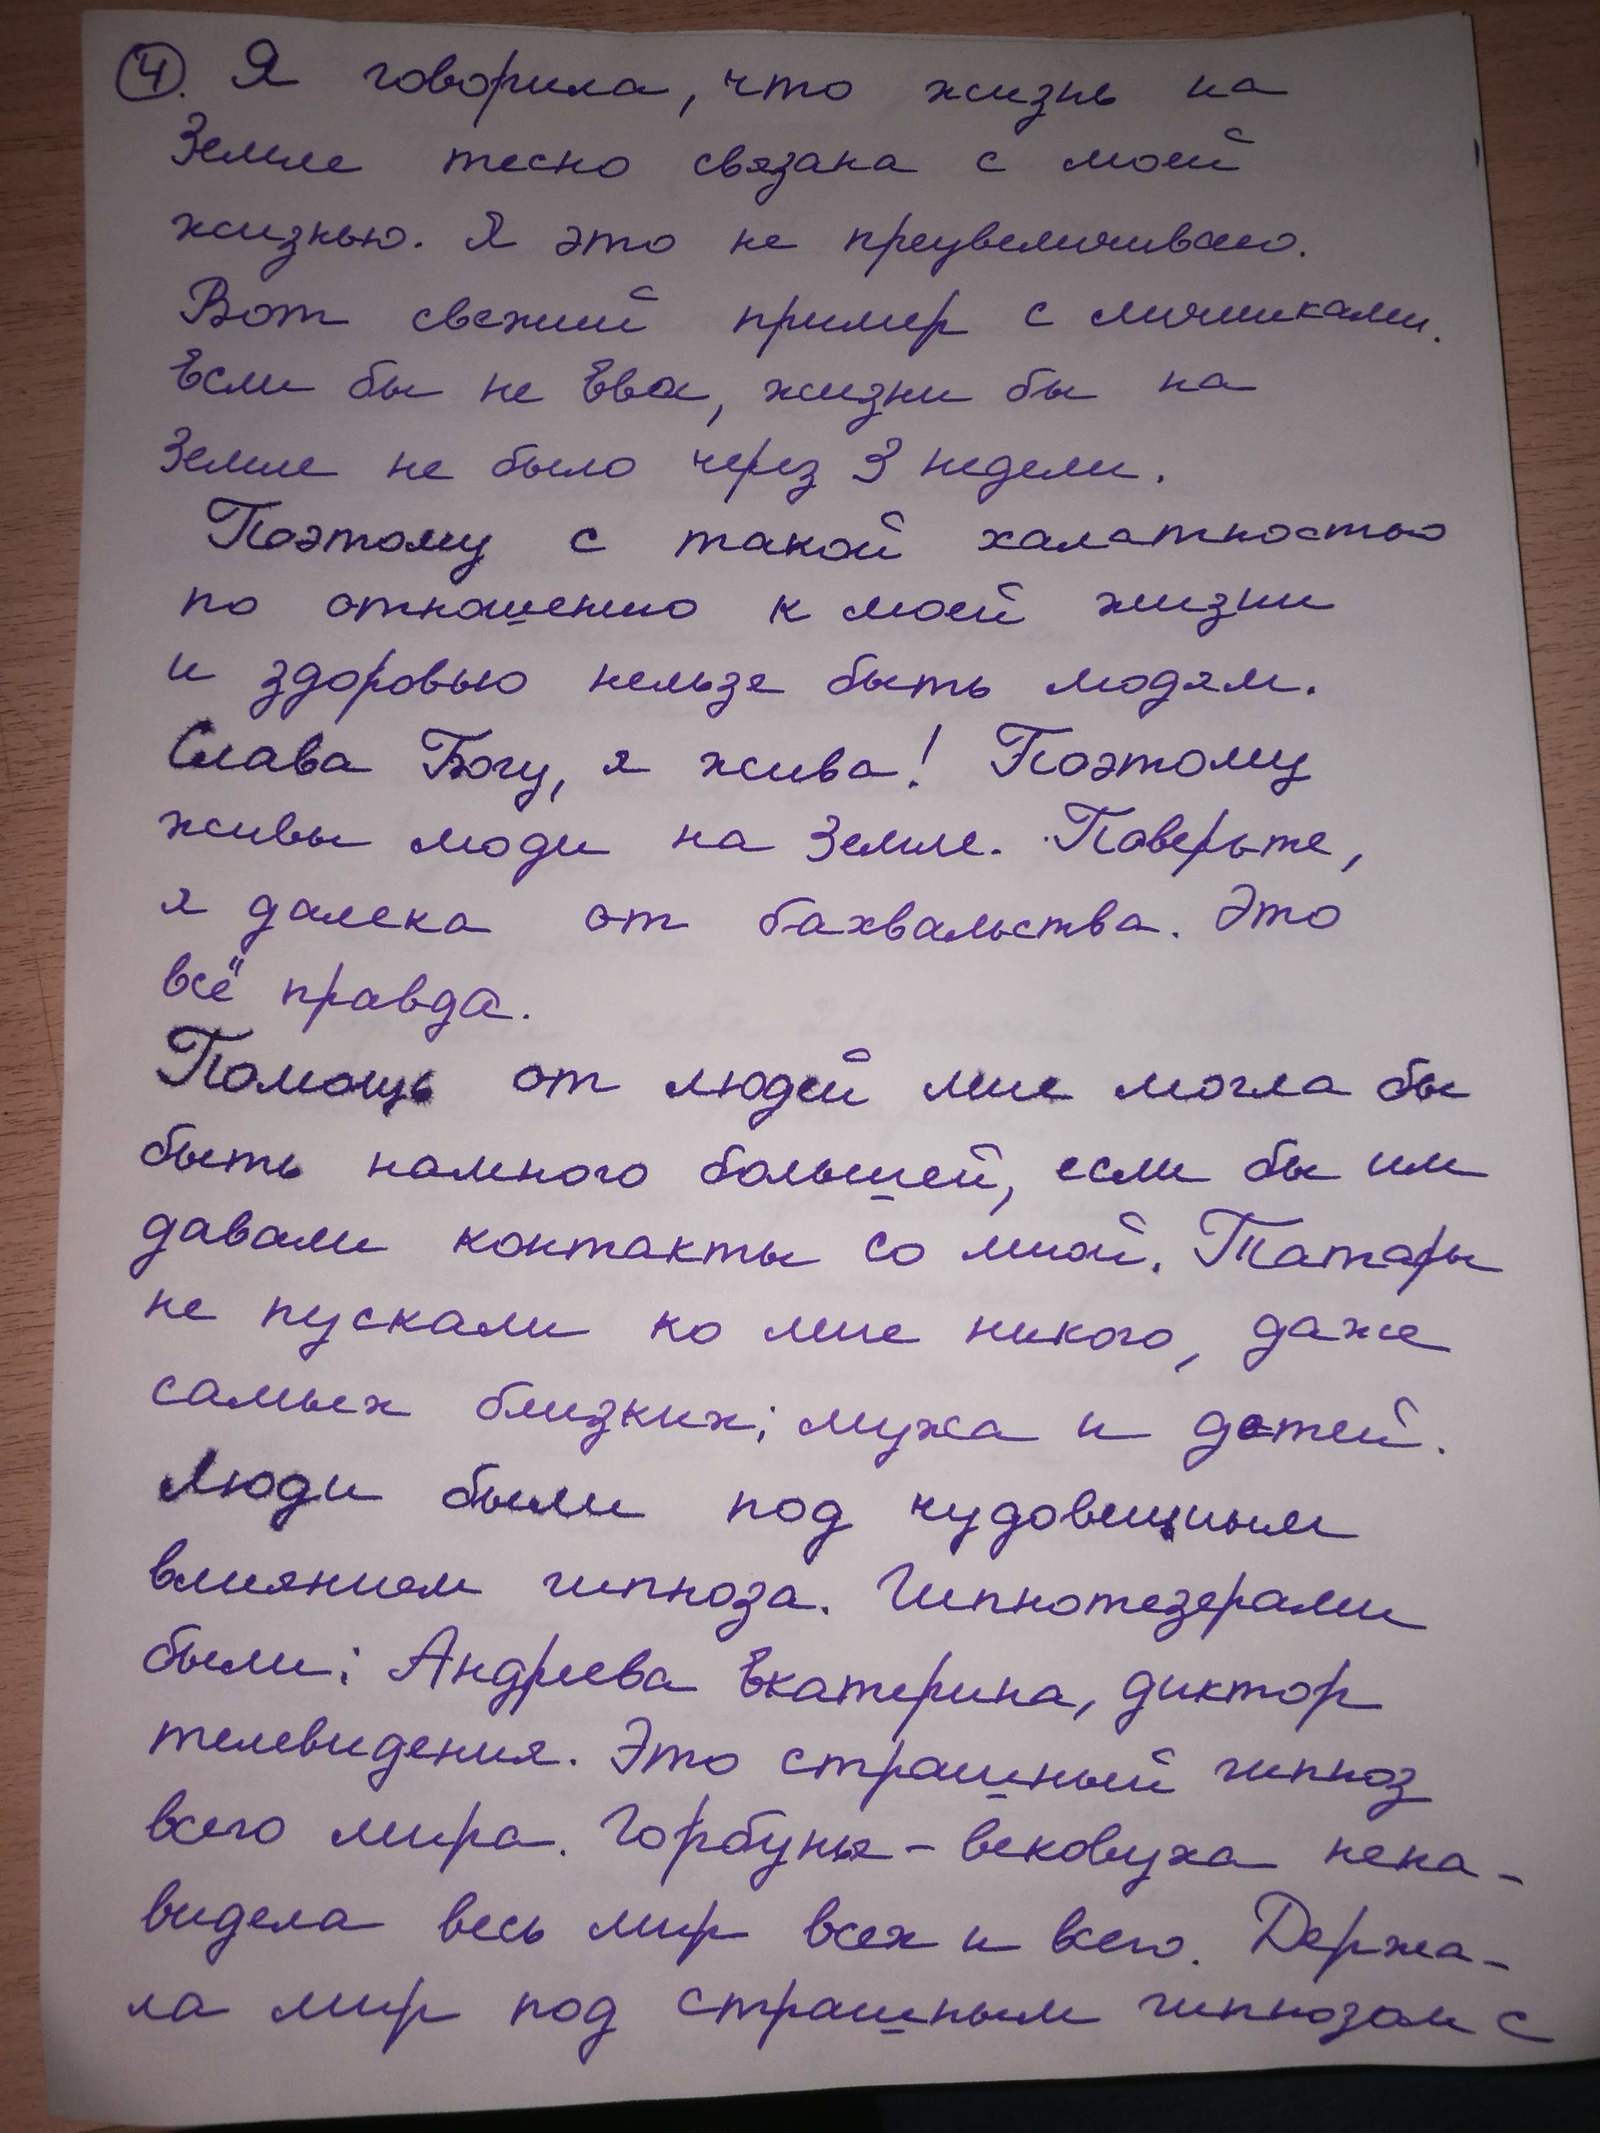 4. Я говорила, что жизнь на
Земле тесно связана с моей
жизнью. Я это не преувеличиваю.
Вот свежий пример с личинками.
Если бы не Ева, жизни бы на
Земле не было через 3 недели.
Поэтому с такой халатностью
по отношению к моей жизни
и здоровью нельзя быть людям.
Слава Богу, я жива! Поэтому
живы люди на Земле. Поверьте,
я далека от бахвальства. Это
всё правда.
Помощь от людей мне могла бы
быть намного большей, если бы им
давали контакты со мной. Татары
не пускали ко мне никого, даже
самых близких: мужа и детей.
Люди были под чудовищным
влиянием гипноза. Гипнотезерами
были: Андреева Екатерина, диктор
телевидения. Это страшный гипноз
всего мира. Горбунья - вековуха нена-
видела весь мир всех и всего. Держа-
ла мир под страшным гипнозом с